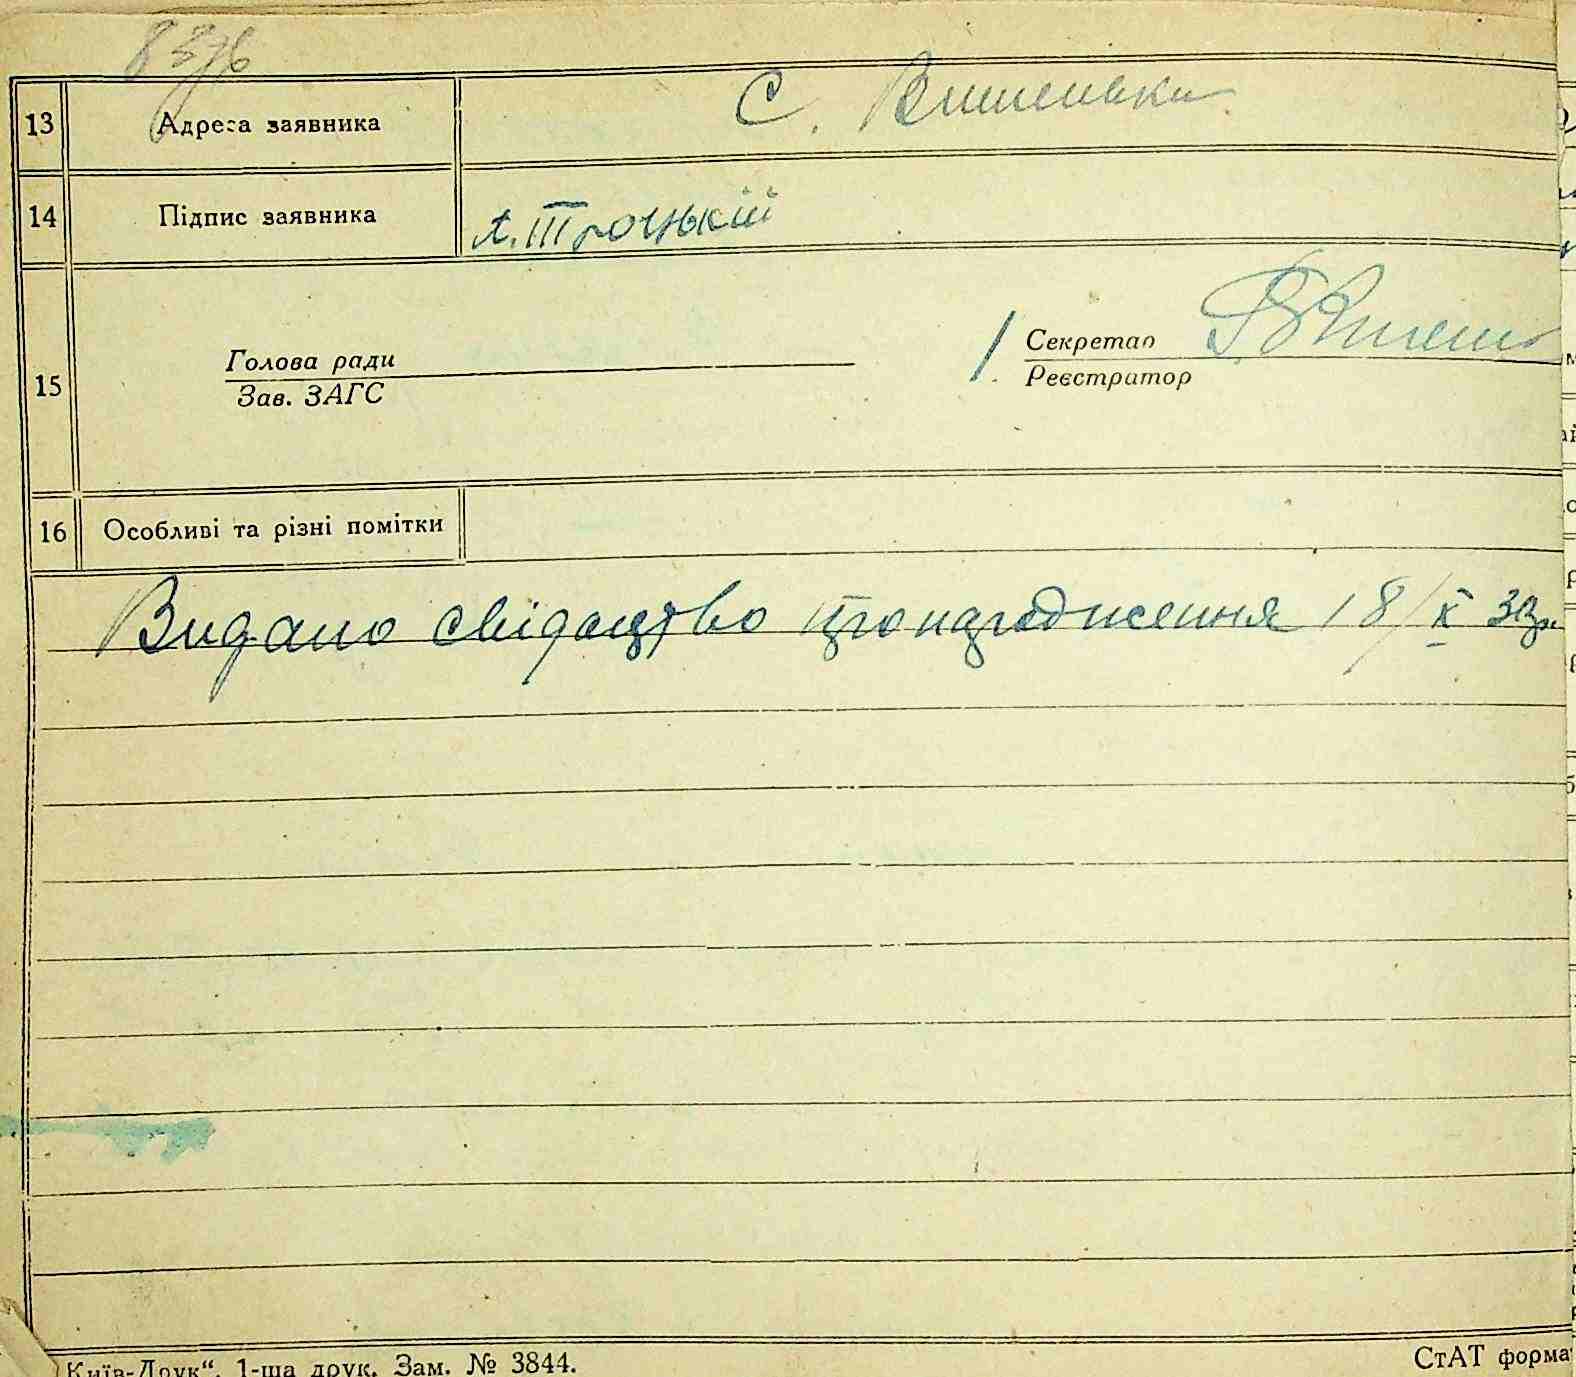 13 Адреса заявника С. Вишеньки
14 Підпис заявника Л. Троцький
15 Голова ради
Зав. ЗАГС
Секретар
Реєстратор
16 Особливі та різні помітки
Видано свідоцтво про народження 18/X
„Київ-Друк“. 1-ша друк. Зам. № 3844.
СтАТ форма